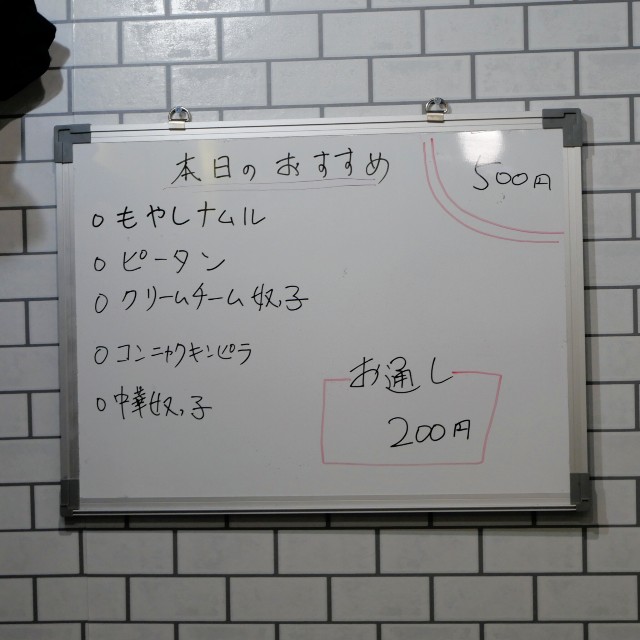 本日のおすすめ
500円
○もやしナムル
○ピータン
○クリームチーム奴子
○コンニャクキンピラ
○中華奴子
お通し
200円